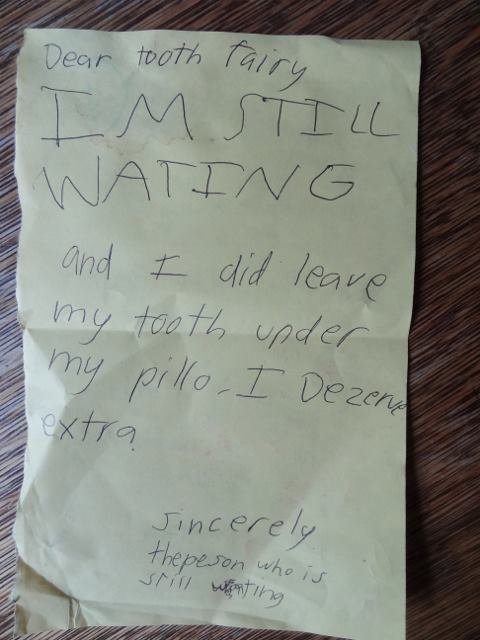 Dear tooth fairy
I M STILL
WATING
and I did leave
my tooth under
my pillo. I Dezerve
extra
sincerely
thepeson who is
still wating